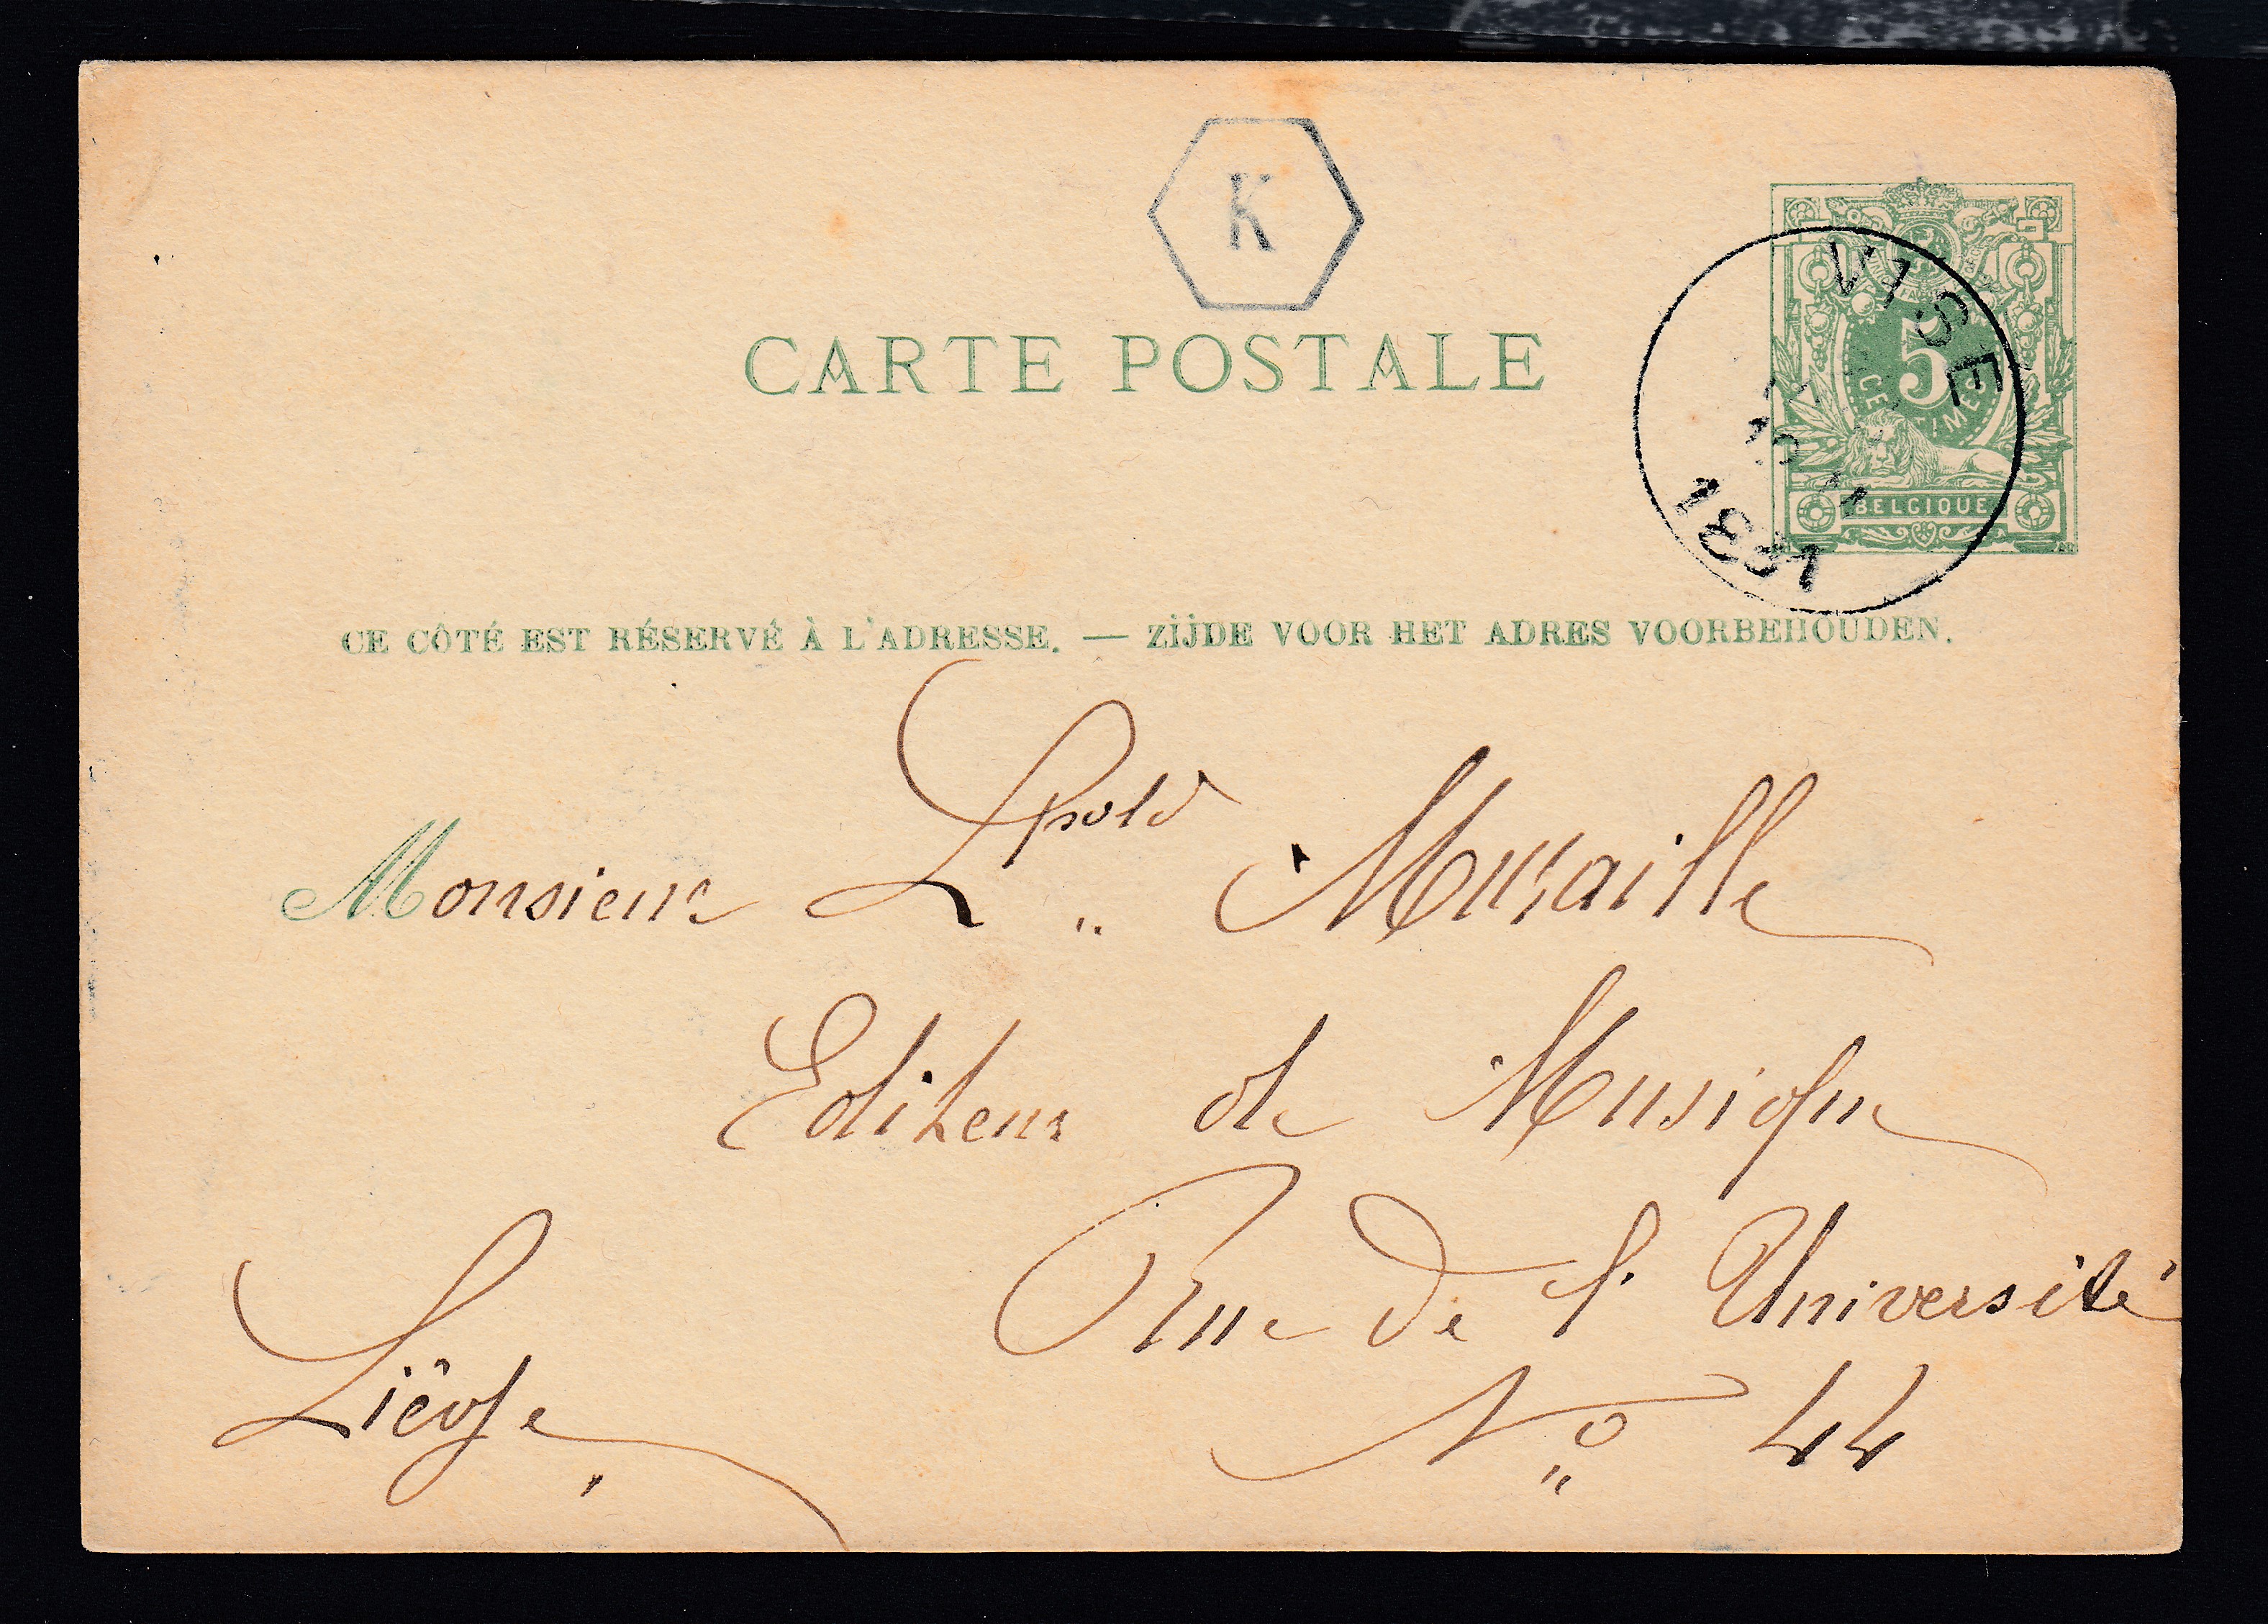 K
CARTE POSTALE
5
CENTIMES
BELGIQUE
VISE
1881
CE CÔTÉ EST RÉSERVÉ À L'ADRESSE. — ZIJDE VOOR HET ADRES VOORBEHOUDEN.
Monsieur Lpold Muraille
Editeur de Musique
Rue de l'Université
Liège No 44